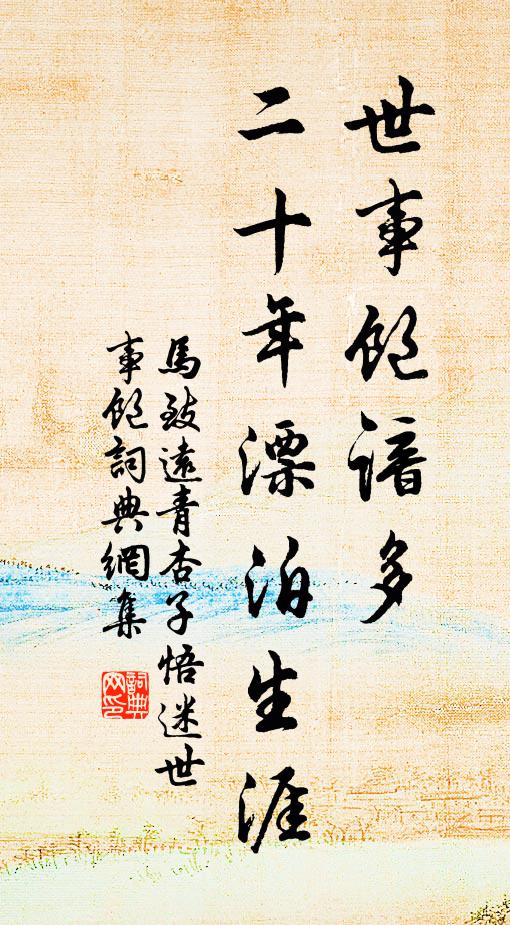 世事飽諳多
二十年漂泊生涯
馬致遠青杏子悟迷世
事飽詞典網集
詞典網印